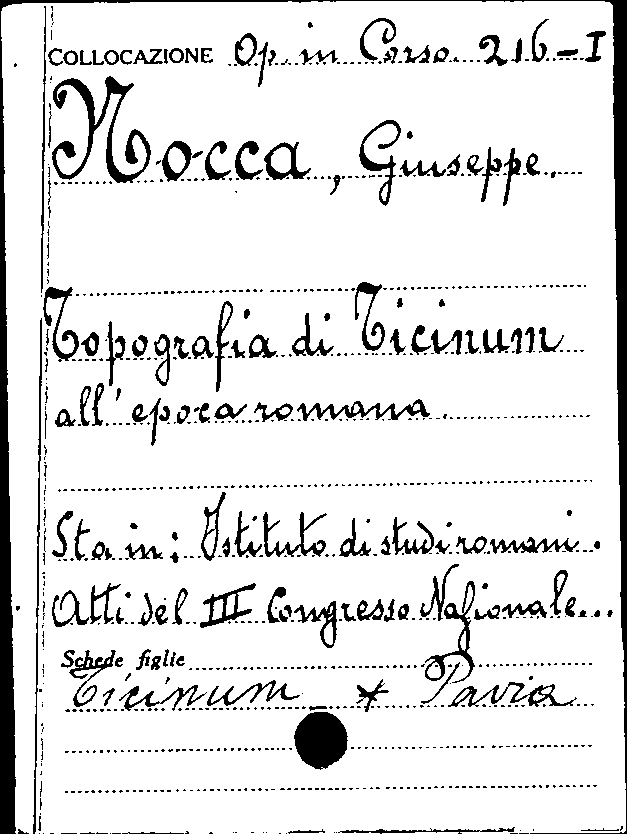 COLLOCAZIONE Op. in Corso. 216-I
Nocca, Giuseppe.
Topografia di Ticinum
all'epoca romana.
Sta in: Istituto di studi romani.
Atti del III Congresso Nazionale...
Schede figlie
Ticinum * Pavia